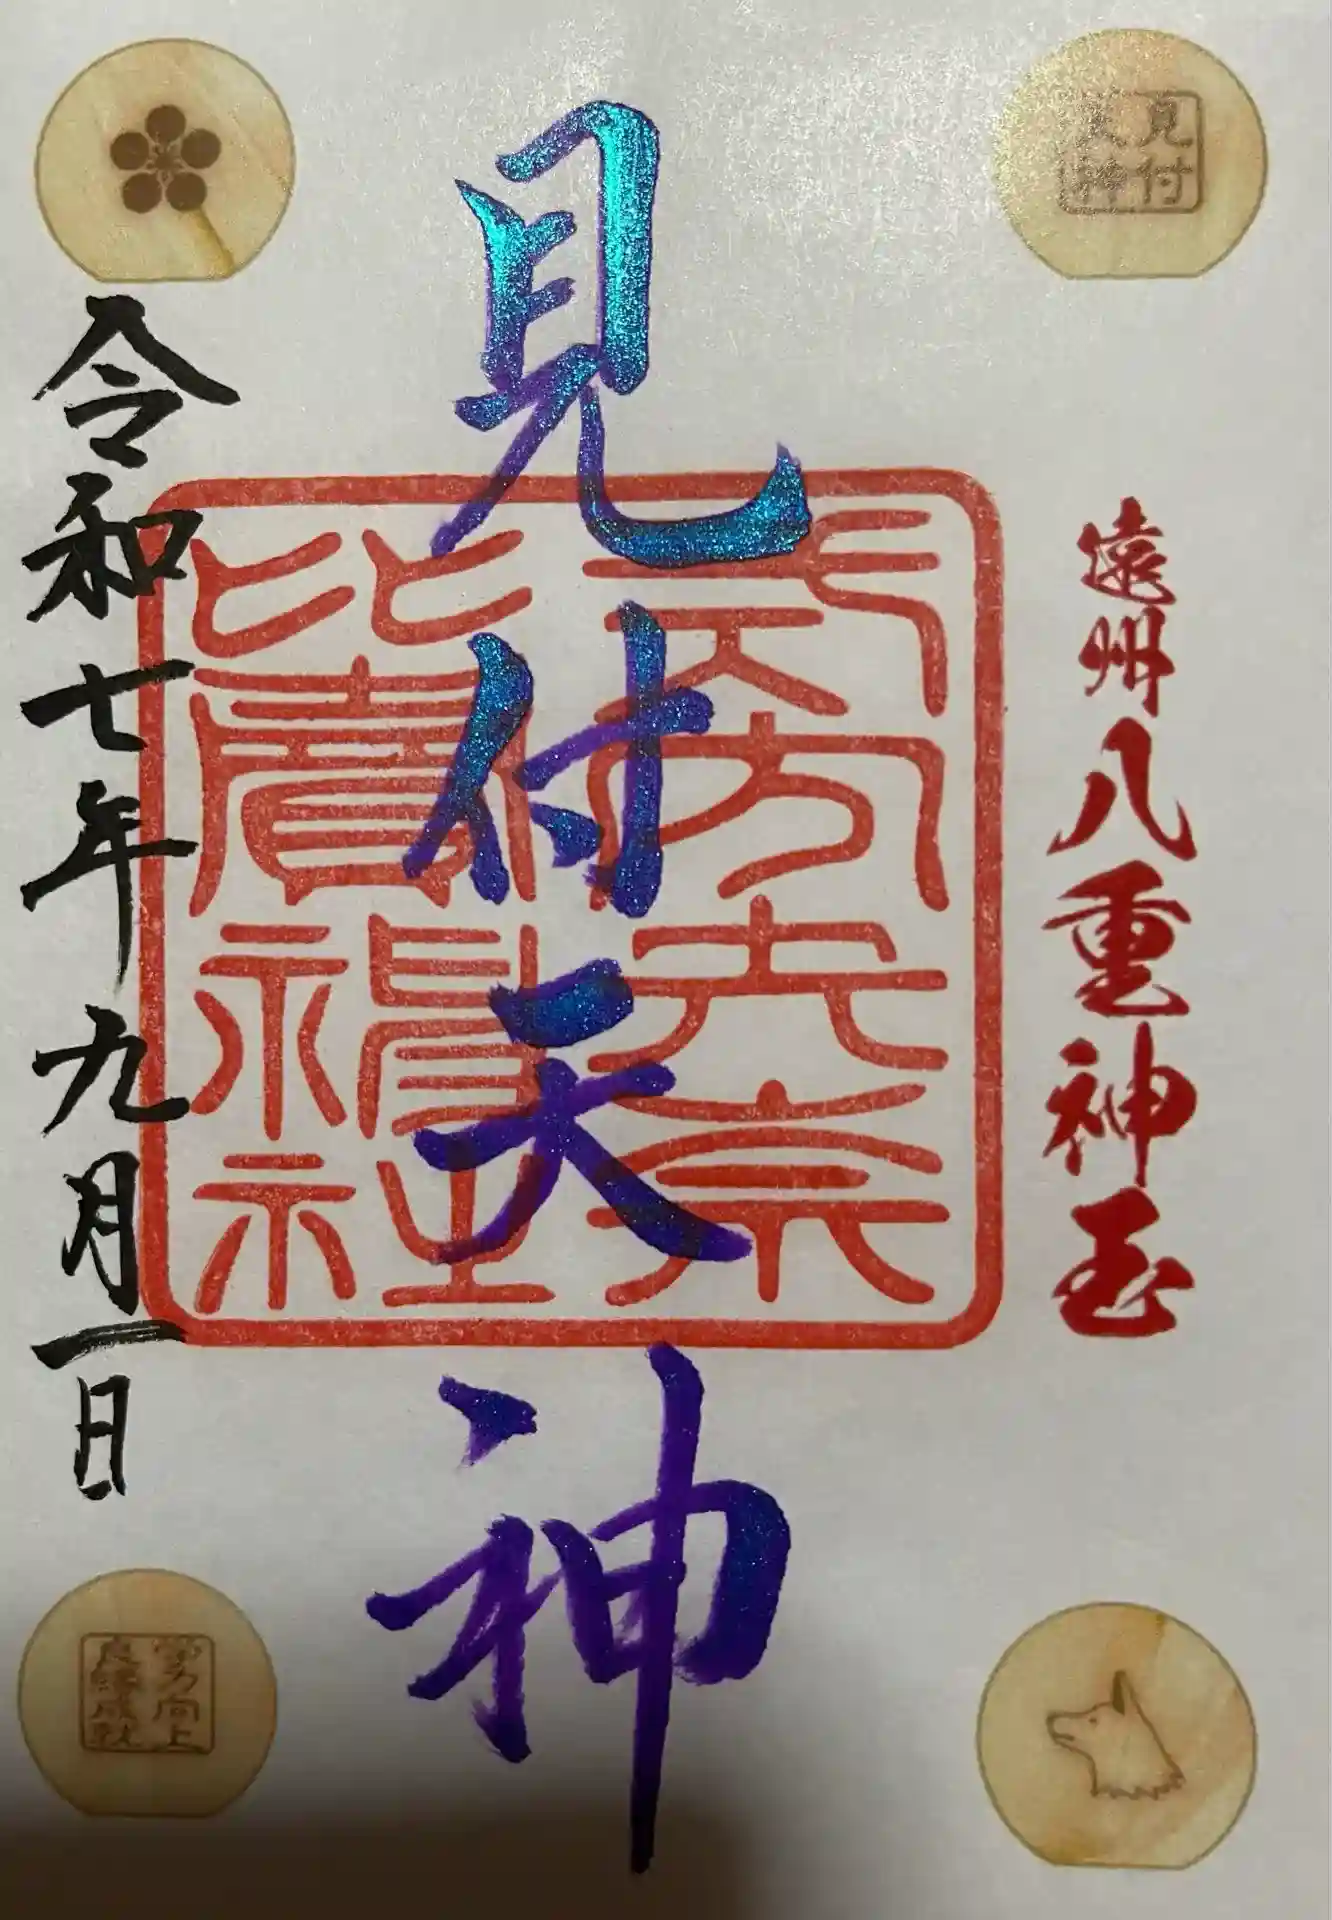 見付
天神
遠州八重神玉
見付天神
式内矢奈
比賣神社
令和七年九月一日
学力向上
良縁成就